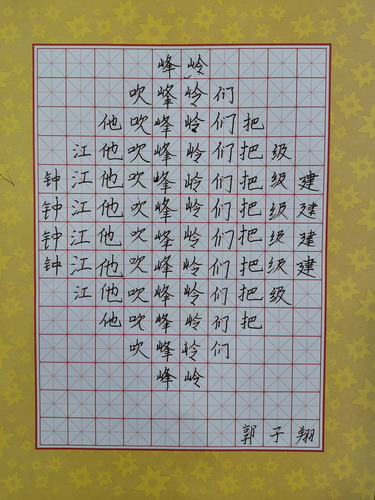 峰岭
吹峰岭们
他吹峰岭们把
江他吹峰岭们把级
钟江他吹峰岭们把级建
钟江他吹峰岭们把级建
钟江他吹峰岭们把级建
钟江他吹峰岭们把级建
江他吹峰岭们把级
他吹峰岭们把
吹峰岭们
峰岭
郭子翔